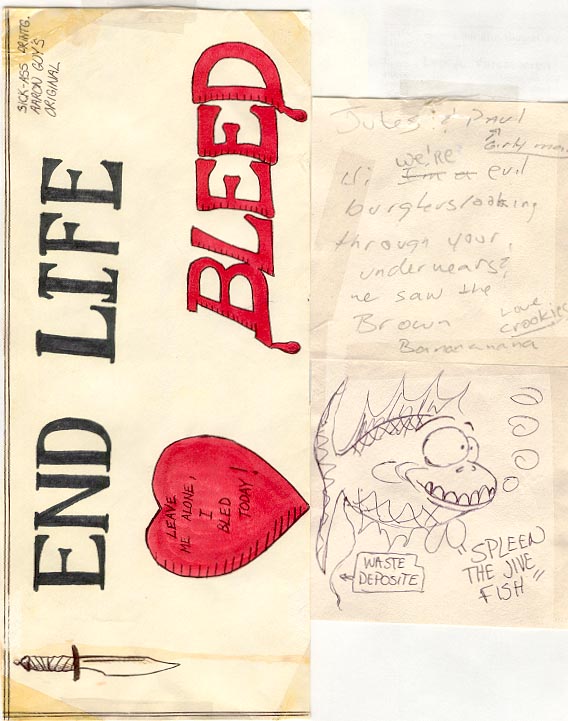 SICK-ASS DRWTG.
AARON GUY'S
ORIGINAL
END LIFE
BLEED
LEAVE
ME ALONE,
I
BLED
TODAY!
Jules & Paul
Girly man
we're
Hi I'm a evil
burglers looking
through your
underwears &
we saw the
Brown
Bananana
Love
Crookies
WASTE
DEPOSITE
"SPLEEN
THE JIVE
FISH"